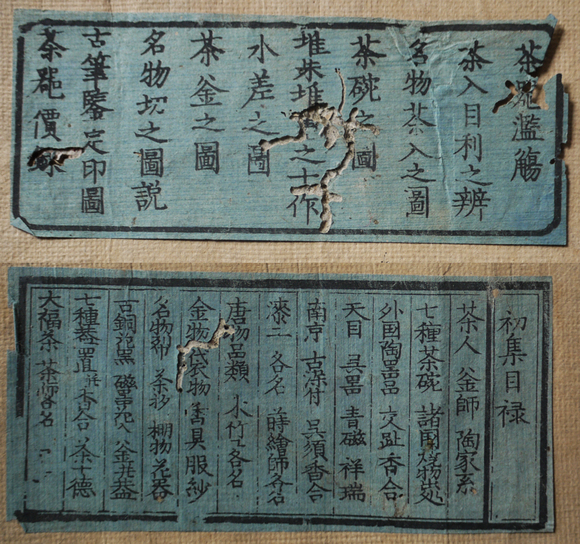 茶濫觴
茶入目利之辨
名物茶入之圖
茶碗之圖
堆朱堆之十作
水差之圖
茶釜之圖
名物切之圖説
古筆鑒定印圖
茶噐價録
初集目禄
茶人 釜師 陶家系
七種茶碗 諸國焼物
外国陶噐品 交趾香合
天目 呉噐 青磁 祥瑞
南京 古染付 呉須香合
漆工 各名 蒔繪師各名
唐物品類 木竹工各名
金物 袋物 香具 服紗
名物裂 茶杓 棚物 花器
古銅花器 釜并蓋
七種 置并香合 茶十德
大福茶 茶師各名